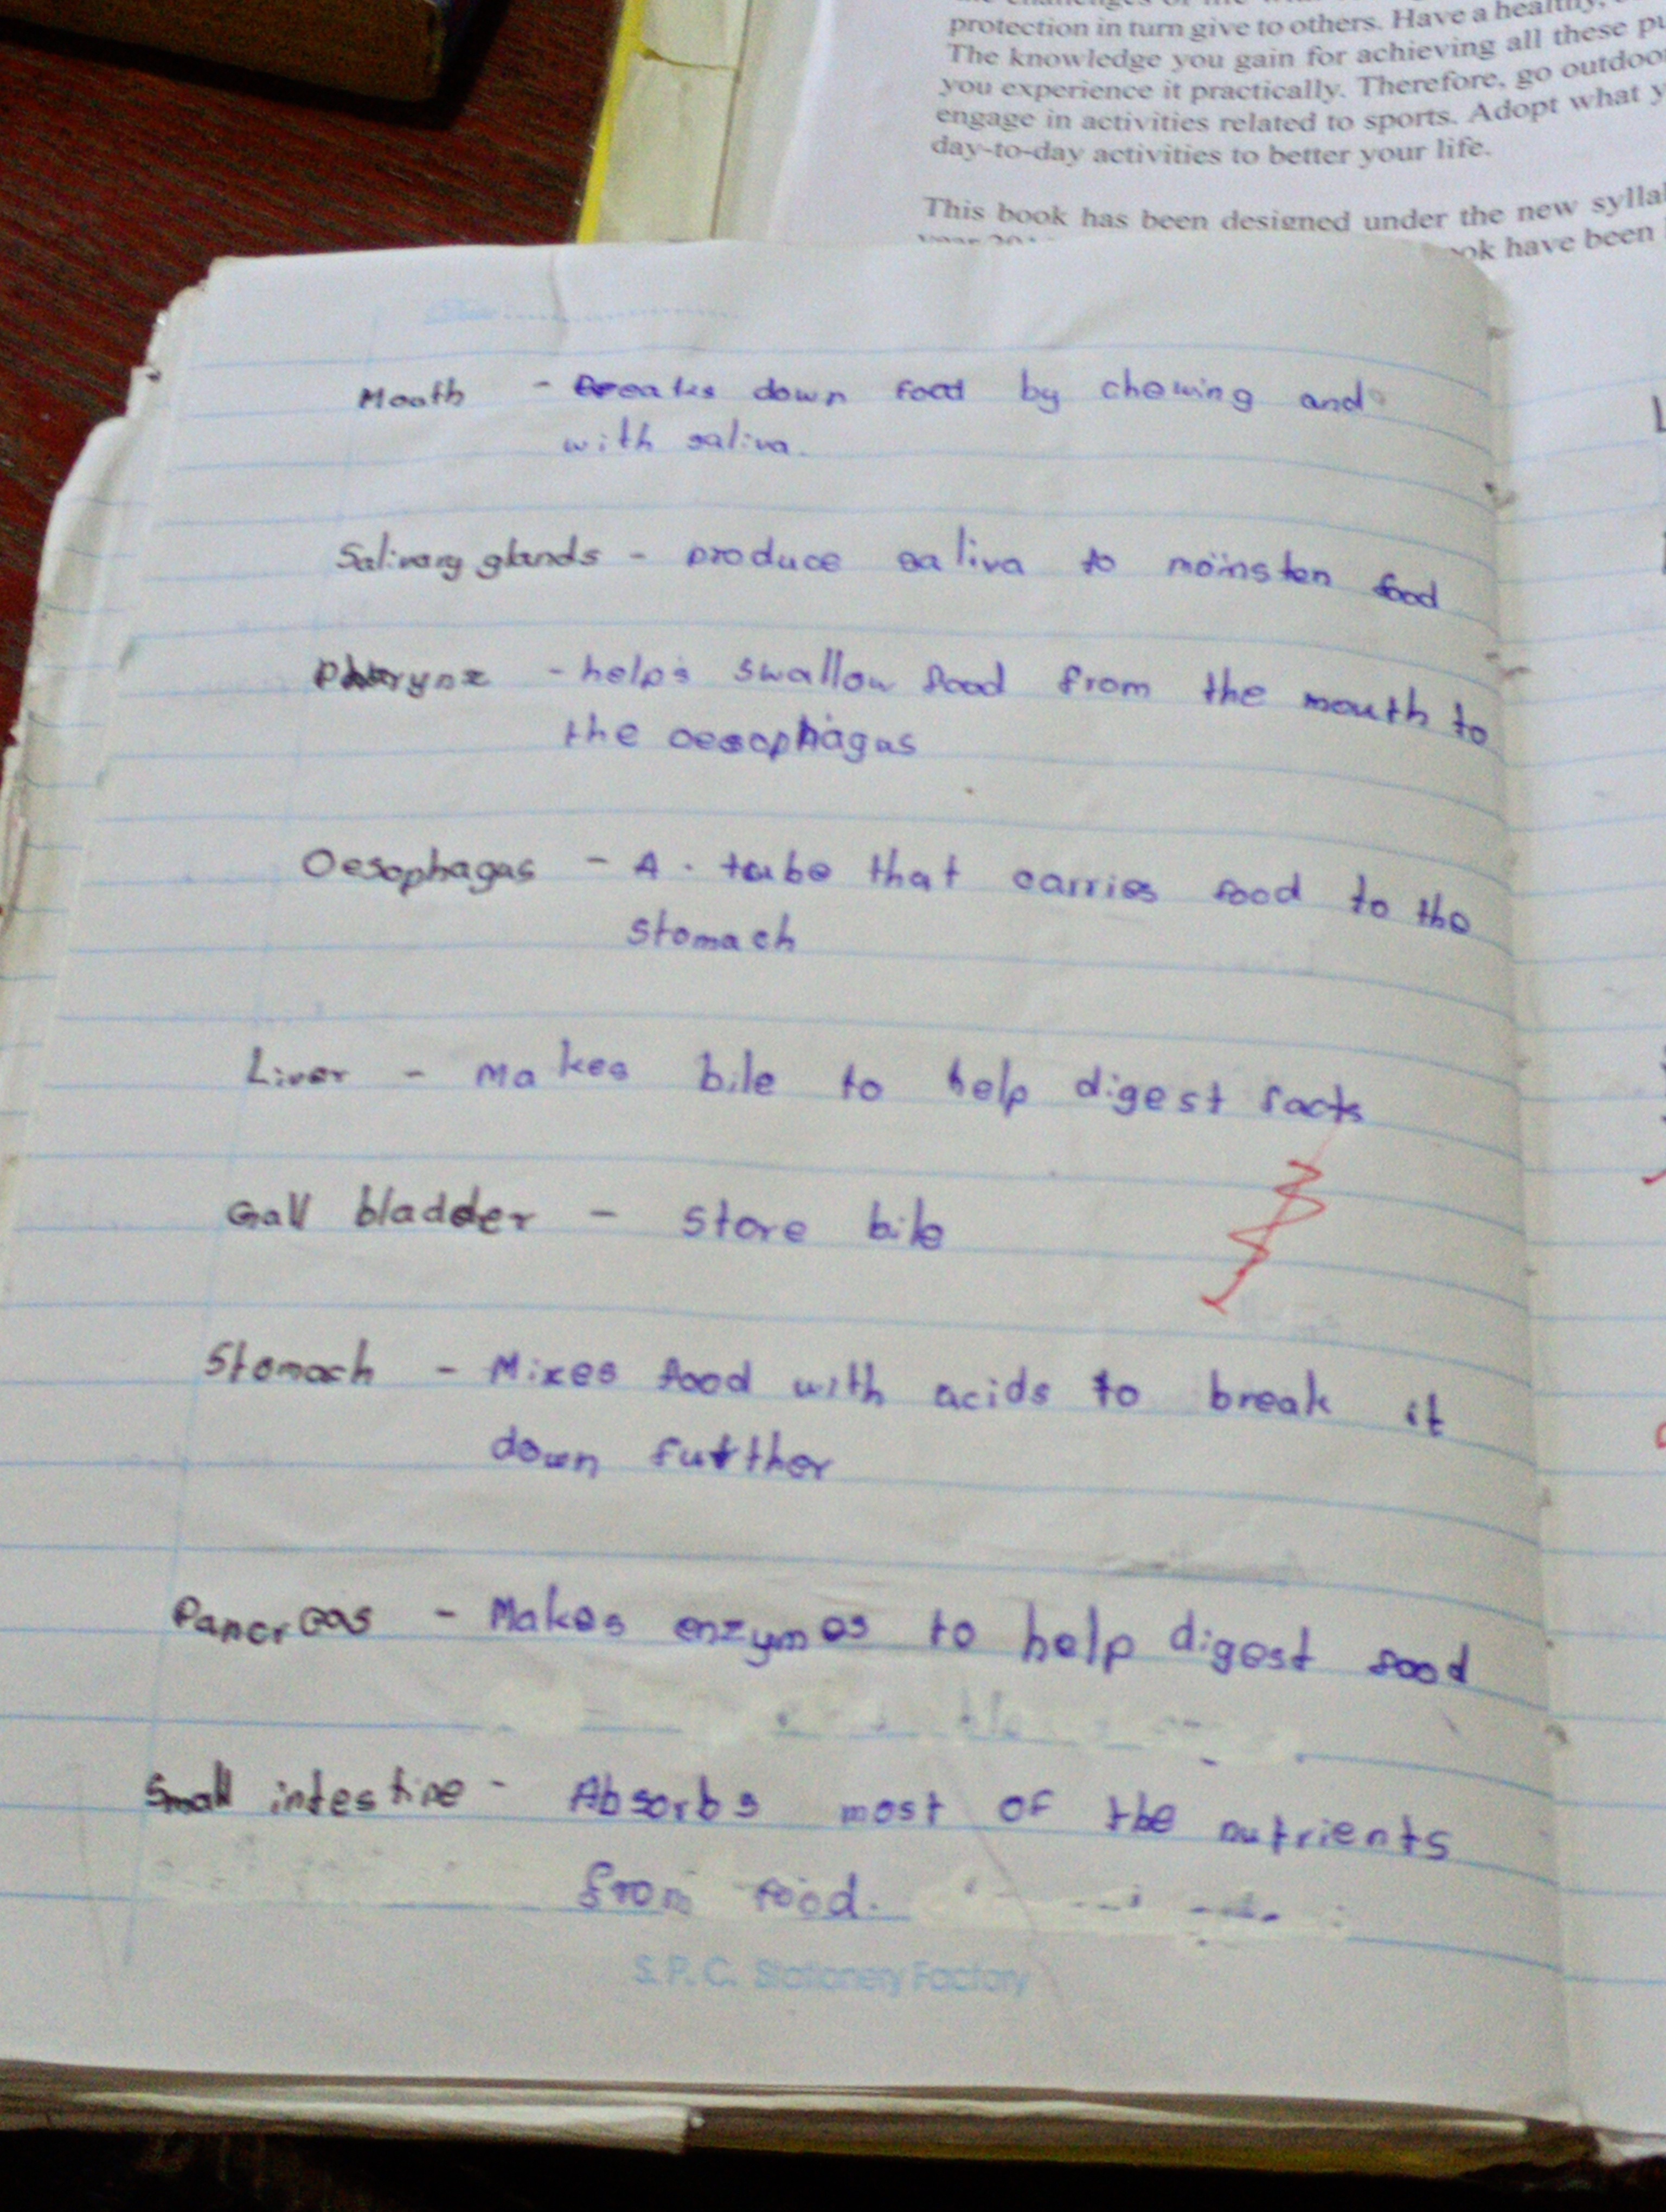 protection in turn give to others. Have a healthy,
The knowledge you gain for achieving all these
you experience it practically. Therefore, go
engage in activities related to sports. Adopt what
day-to-day activities to better your life.
This book has been designed under the new
have been
Mouth - Breaks down food by chewing and
with saliva.
Salivary glands - produce saliva to moinsten food
Pharynx - helps swallow food from the mouth to
the oesophagus
Oesophagus - A tube that carries food to the
stomach
Liver - Makes bile to help digest facts
Gall bladder - store bile
Stomach - Mixes food with acids to break it
down further
Pancreas - Makes enzymes to help digest food
Small intestine - Absorbs most of the nutrients
from food.
S.P.C. Stationery Factory